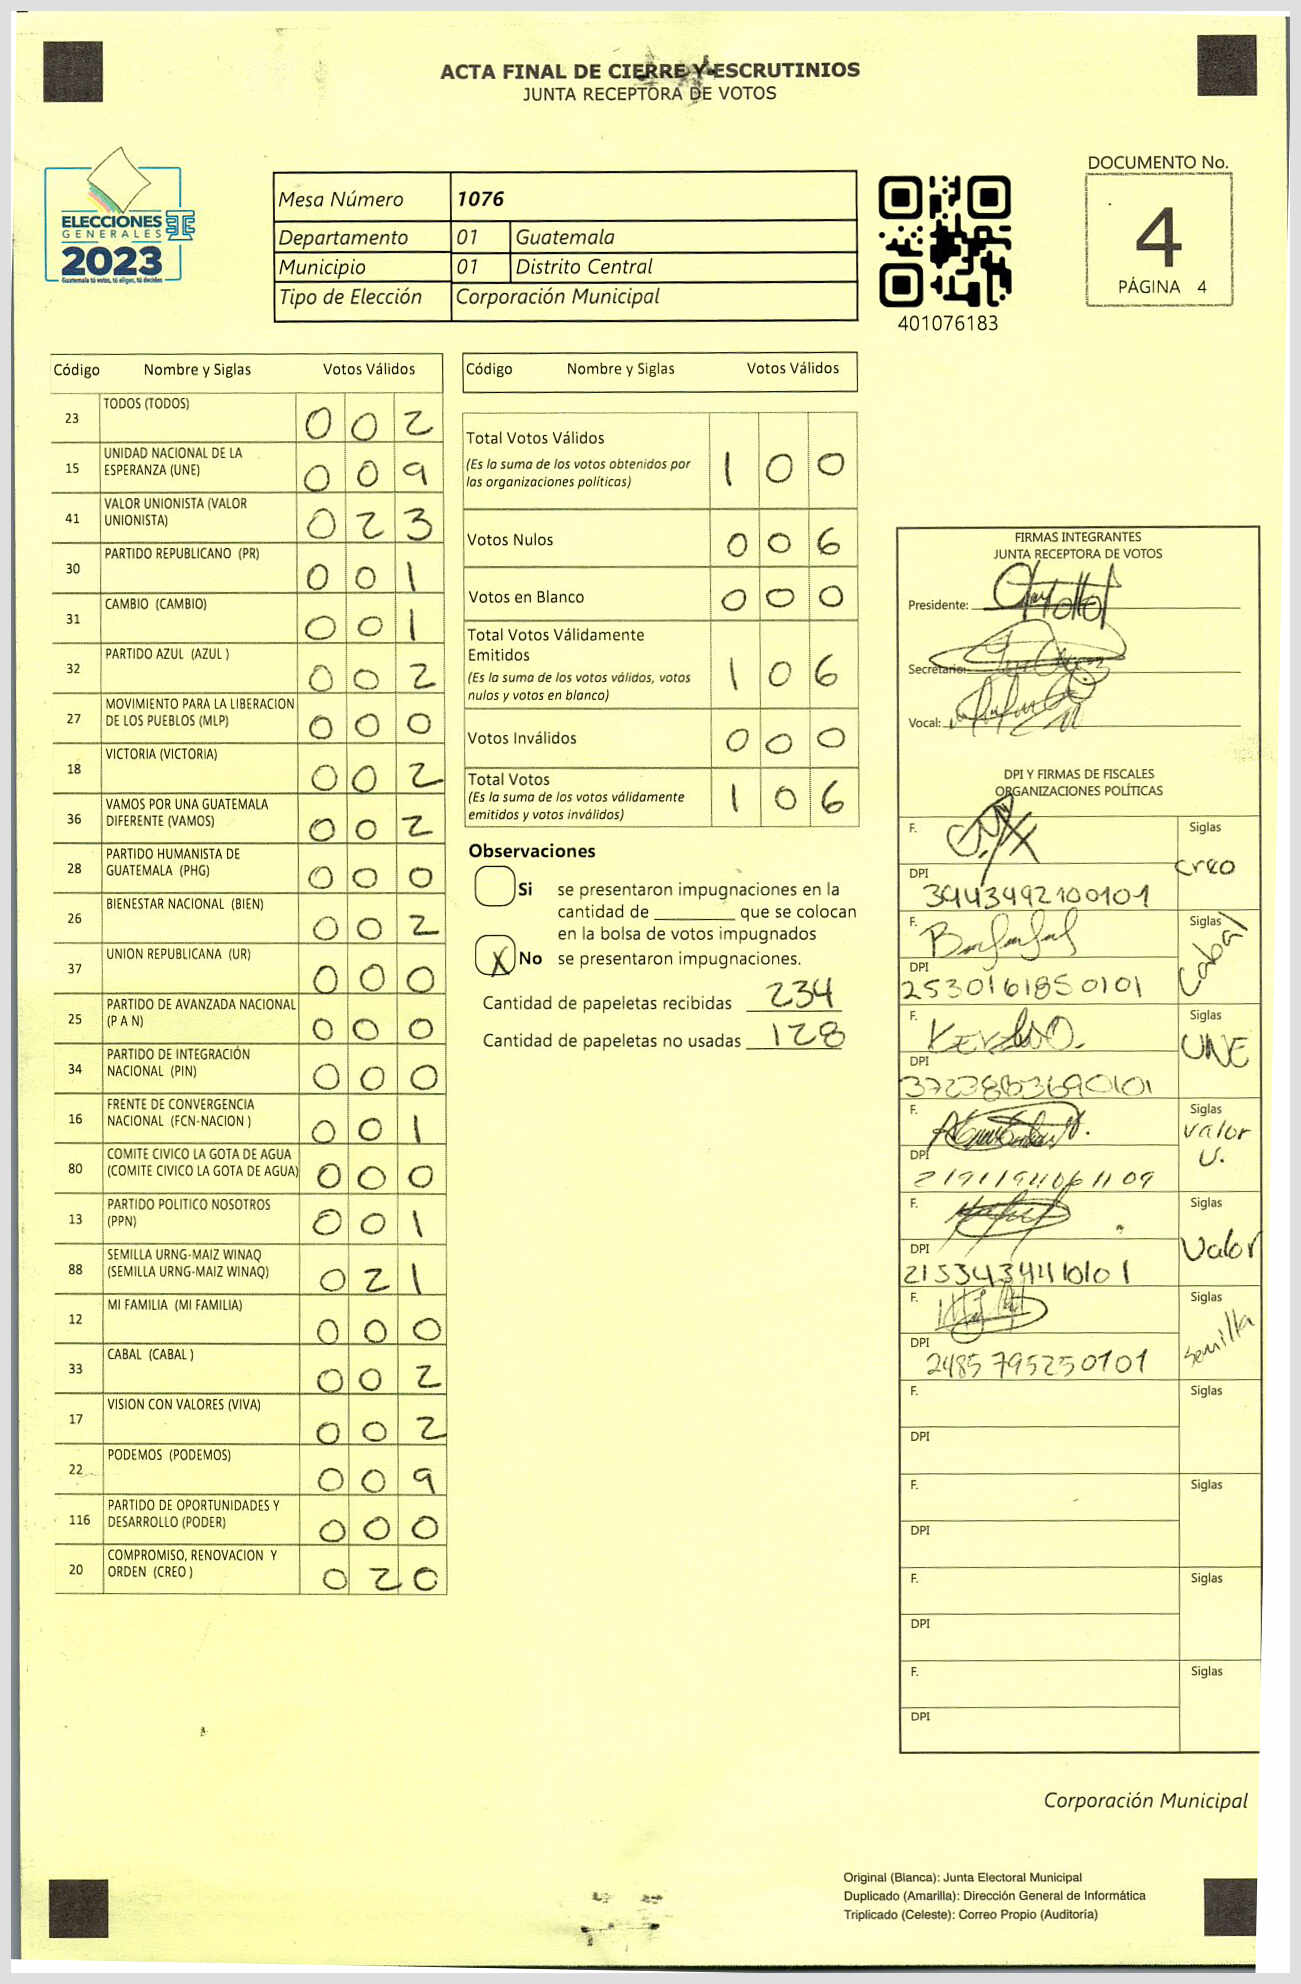 ACTA FINAL DE CIERRE Y ESCRUTINIOS
JUNTA RECEPTORA DE VOTOS
ELECCIONES
GENERALES
2023
Guatemala tú votas, tú eliges, tú decides
Mesa Número 1076
Departamento 01 Guatemala
Municipio 01 Distrito Central
Tipo de Elección Corporación Municipal
401076183
DOCUMENTO No.
4
PÁGINA 4
Código Nombre y Siglas Votos Válidos
23 TODOS (TODOS) 0 0 2
15 UNIDAD NACIONAL DE LA ESPERANZA (UNE) 0 0 9
41 VALOR UNIONISTA (VALOR UNIONISTA) 0 2 3
30 PARTIDO REPUBLICANO (PR) 0 0 1
31 CAMBIO (CAMBIO) 0 0 1
32 PARTIDO AZUL (AZUL ) 0 0 2
27 MOVIMIENTO PARA LA LIBERACION DE LOS PUEBLOS (MLP) 0 0 0
18 VICTORIA (VICTORIA) 0 0 2
36 VAMOS POR UNA GUATEMALA DIFERENTE (VAMOS) 0 0 2
28 PARTIDO HUMANISTA DE GUATEMALA (PHG) 0 0 0
26 BIENESTAR NACIONAL (BIEN) 0 0 2
37 UNION REPUBLICANA (UR) 0 0 0
25 PARTIDO DE AVANZADA NACIONAL (P A N) 0 0 0
34 PARTIDO DE INTEGRACIÓN NACIONAL (PIN) 0 0 0
16 FRENTE DE CONVERGENCIA NACIONAL (FCN-NACION ) 0 0 1
80 COMITE CIVICO LA GOTA DE AGUA (COMITE CIVICO LA GOTA DE AGUA) 0 0 0
13 PARTIDO POLITICO NOSOTROS (PPN) 0 0 1
88 SEMILLA URNG-MAIZ WINAQ (SEMILLA URNG-MAIZ WINAQ) 0 2 1
12 MI FAMILIA (MI FAMILIA) 0 0 0
33 CABAL (CABAL ) 0 0 2
17 VISION CON VALORES (VIVA) 0 0 2
22 PODEMOS (PODEMOS) 0 0 9
116 PARTIDO DE OPORTUNIDADES Y DESARROLLO (PODER) 0 0 0
20 COMPROMISO, RENOVACION Y ORDEN (CREO ) 0 2 0
Código Nombre y Siglas Votos Válidos
Total Votos Válidos 1 0 0
(Es la suma de los votos obtenidos por
las organizaciones políticas)
Votos Nulos 0 0 6
Votos en Blanco 0 0 0
Total Votos Válidamente
Emitidos 1 0 6
(Es la suma de los votos válidos, votos
nulos y votos en blanco)
Votos Inválidos 0 0 0
Total Votos 1 0 6
(Es la suma de los votos válidamente
emitidos y votos inválidos)
Observaciones
Si se presentaron impugnaciones en la
cantidad de ________ que se colocan
en la bolsa de votos impugnados
X No se presentaron impugnaciones.
Cantidad de papeletas recibidas 234
Cantidad de papeletas no usadas 128
FIRMAS INTEGRANTES
JUNTA RECEPTORA DE VOTOS
Presidente:
Secretario:
Vocal:
DPI Y FIRMAS DE FISCALES
ORGANIZACIONES POLÍTICAS
F. Siglas
creo
DPI 3443492100101
F. Siglas
Cabal
DPI 2530161850101
F. Siglas
UNE
DPI
F. Siglas
Valor
U.
DPI
F. Siglas
Valor
DPI 2153434410101
F. Siglas
Semilla
DPI 2485795250101
F. Siglas
DPI
F. Siglas
DPI
F. Siglas
DPI
F. Siglas
DPI
Corporación Municipal
Original (Blanca): Junta Electoral Municipal
Duplicado (Amarilla): Dirección General de Informática
Triplicado (Celeste): Correo Propio (Auditoría)